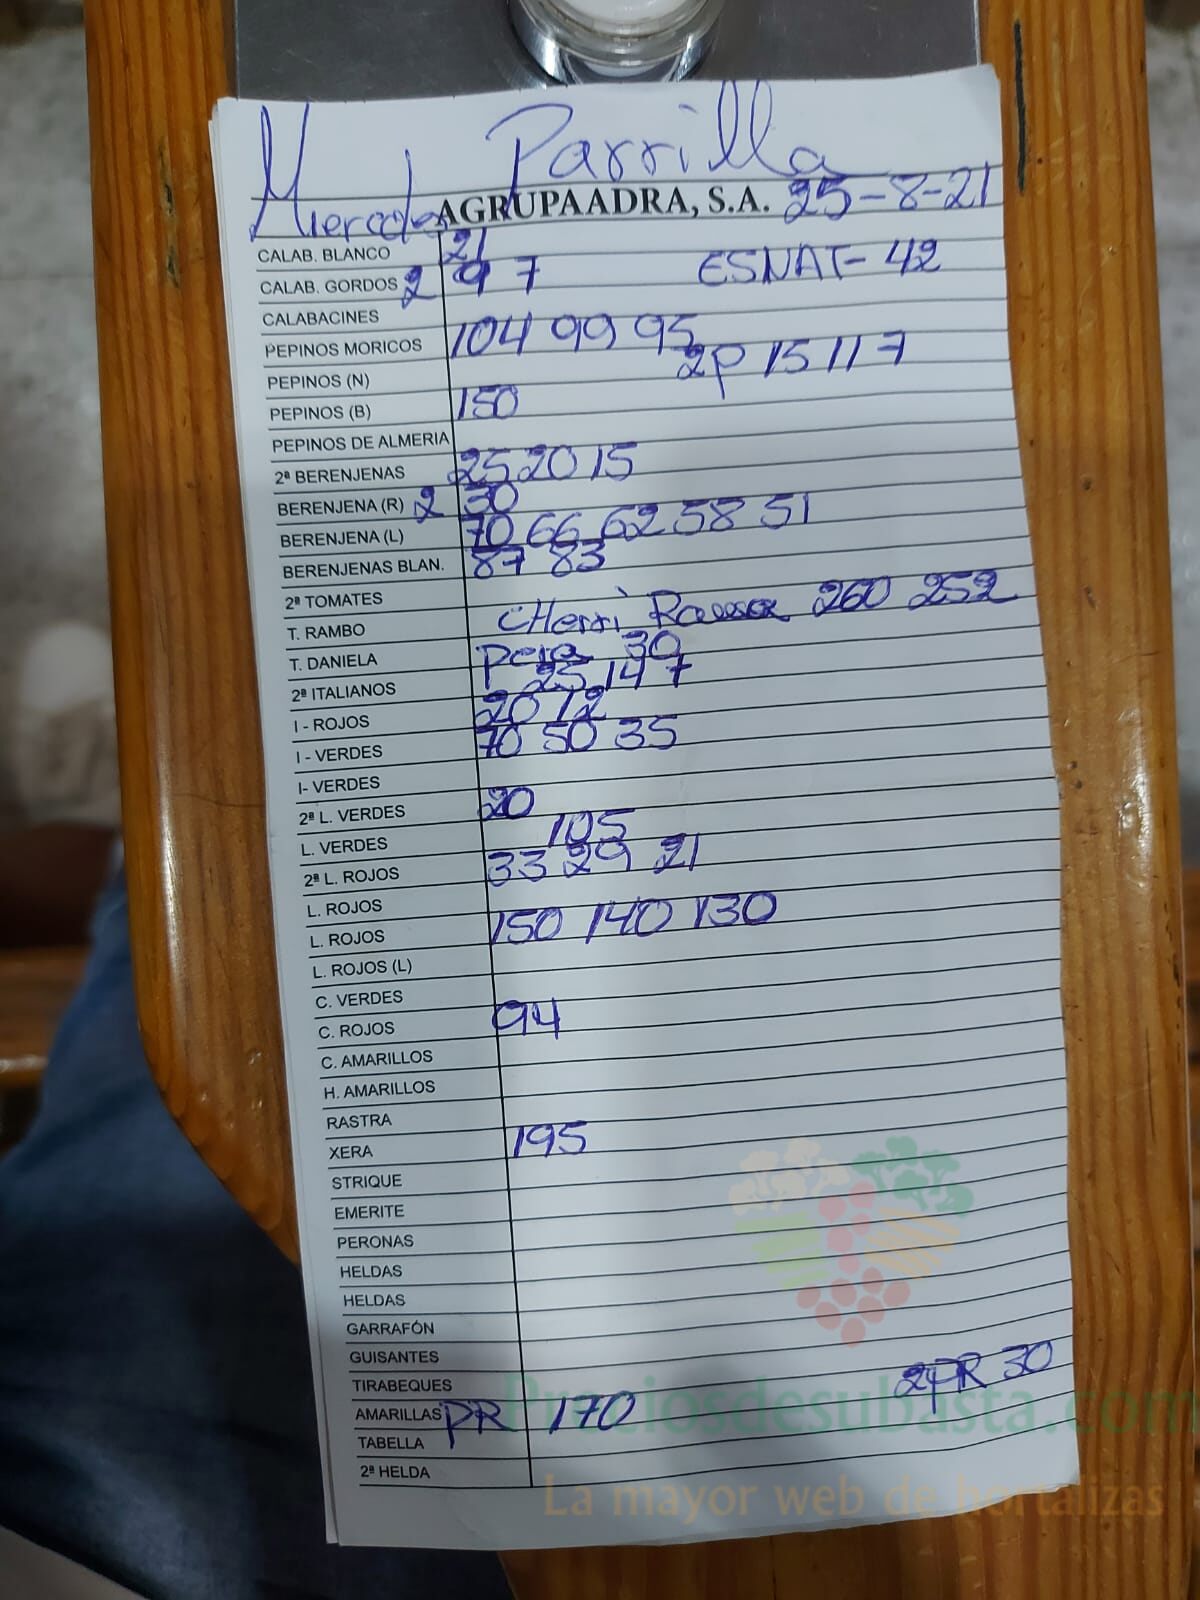 Parrilla
Miercoles AGRUPAADRA, S.A. 25-8-21
CALAB. BLANCO 21
CALAB. GORDOS 2 9 7 ESNAT- 42
CALABACINES
PEPINOS MORICOS 104 99 95
PEPINOS (N) 2P 15 11 7
PEPINOS (B) 150
PEPINOS DE ALMERIA
2ª BERENJENAS 25 20 15
BERENJENA (R) 2 30
BERENJENA (L) 70 66 62 58 51
BERENJENAS BLAN. 87 83
2ª TOMATES
T. RAMBO CHerri Rama 260 252
T. DANIELA pera 30
2ª ITALIANOS 25 14 7
I - ROJOS 20 12
I - VERDES 70 50 35
I- VERDES
2ª L. VERDES 20
L. VERDES 105
2ª L. ROJOS 33 29 21
L. ROJOS
L. ROJOS 150 140 130
L. ROJOS (L)
C. VERDES
C. ROJOS 94
C. AMARILLOS
H. AMARILLOS
RASTRA
XERA 195
STRIQUE
EMERITE
PERONAS
HELDAS
HELDAS
GARRAFÓN
GUISANTES
TIRABEQUES 2ªPR 30
AMARILLAS PR 170
TABELLA
2ª HELDA
Preciosdesubasta.com
La mayor web de hortalizas